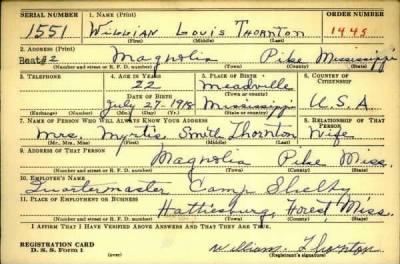 SERIAL NUMBER 1. NAME (Print) ORDER NUMBER
1551 Willian Louis Thornton 1445
(First) (Middle) (Last)
2. ADDRESS (Print)
Beat #2 Magnolia Pike Mississippi
(Number and street or R. F. D. number) (Town) (County) (State)
3. TELEPHONE 4. AGE IN YEARS 5. PLACE OF BIRTH 6. COUNTRY OF CITIZENSHIP
22 Meadville
DATE OF BIRTH (Town or county)
July 27-1918 Mississippi U.S.A.
(Exchange) (Number) (Mo.) (Day) (Yr.) (State or country)
7. NAME OF PERSON WHO WILL ALWAYS KNOW YOUR ADDRESS 8. RELATIONSHIP OF THAT PERSON
Mrs. Myrtis Smith Thornton Wife
(Mr., Mrs., Miss) (First) (Middle) (Last)
9. ADDRESS OF THAT PERSON
Magnolia Pike Miss.
(Number and street or R. F. D. number) (Town) (County) (State)
10. EMPLOYER'S NAME
Quartermaster Camp Shelby
11. PLACE OF EMPLOYMENT OR BUSINESS
Hattiesburg, Forest, Miss.
(Number and street or R. F. D. number) (Town) (County) (State)
I AFFIRM THAT I HAVE VERIFIED ABOVE ANSWERS AND THAT THEY ARE TRUE.
REGISTRATION CARD
D. S. S. Form 1
William Thornton
(Registrant's signature)